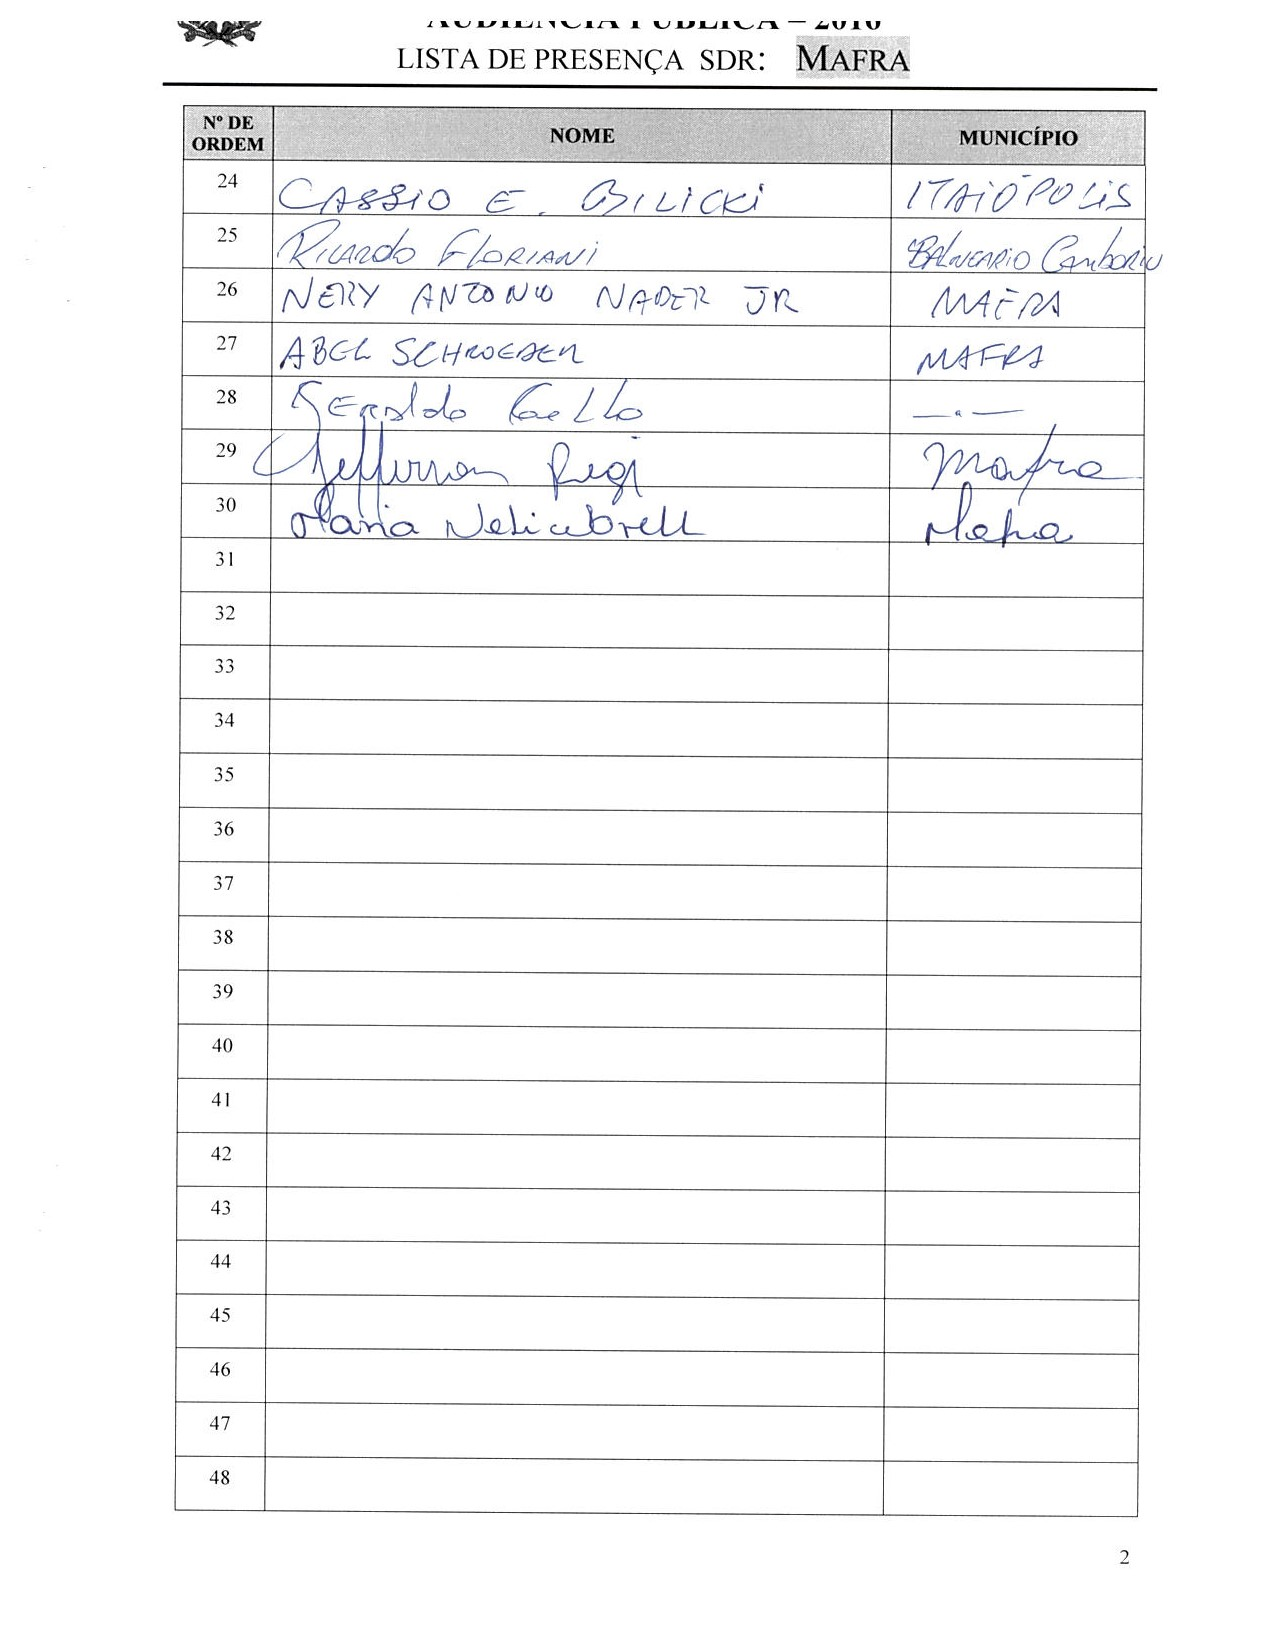 AUDIÊNCIA PÚBLICA – 2010
LISTA DE PRESENÇA SDR: MAFRA
Nº DE ORDEM NOME MUNICÍPIO
24 CASSIO E. BILICKI ITAIÓPOLIS
25 RICARDO FLORIANI BALNEARIO CAMBORIU
26 NERY ANTONIO NADER JR MAFRA
27 ABEL SCHROEDER MAFRA
28 GERALDO —"—
29 Jefferson Mafra
30 Maria Mafra
31
32
33
34
35
36
37
38
39
40
41
42
43
44
45
46
47
48
2